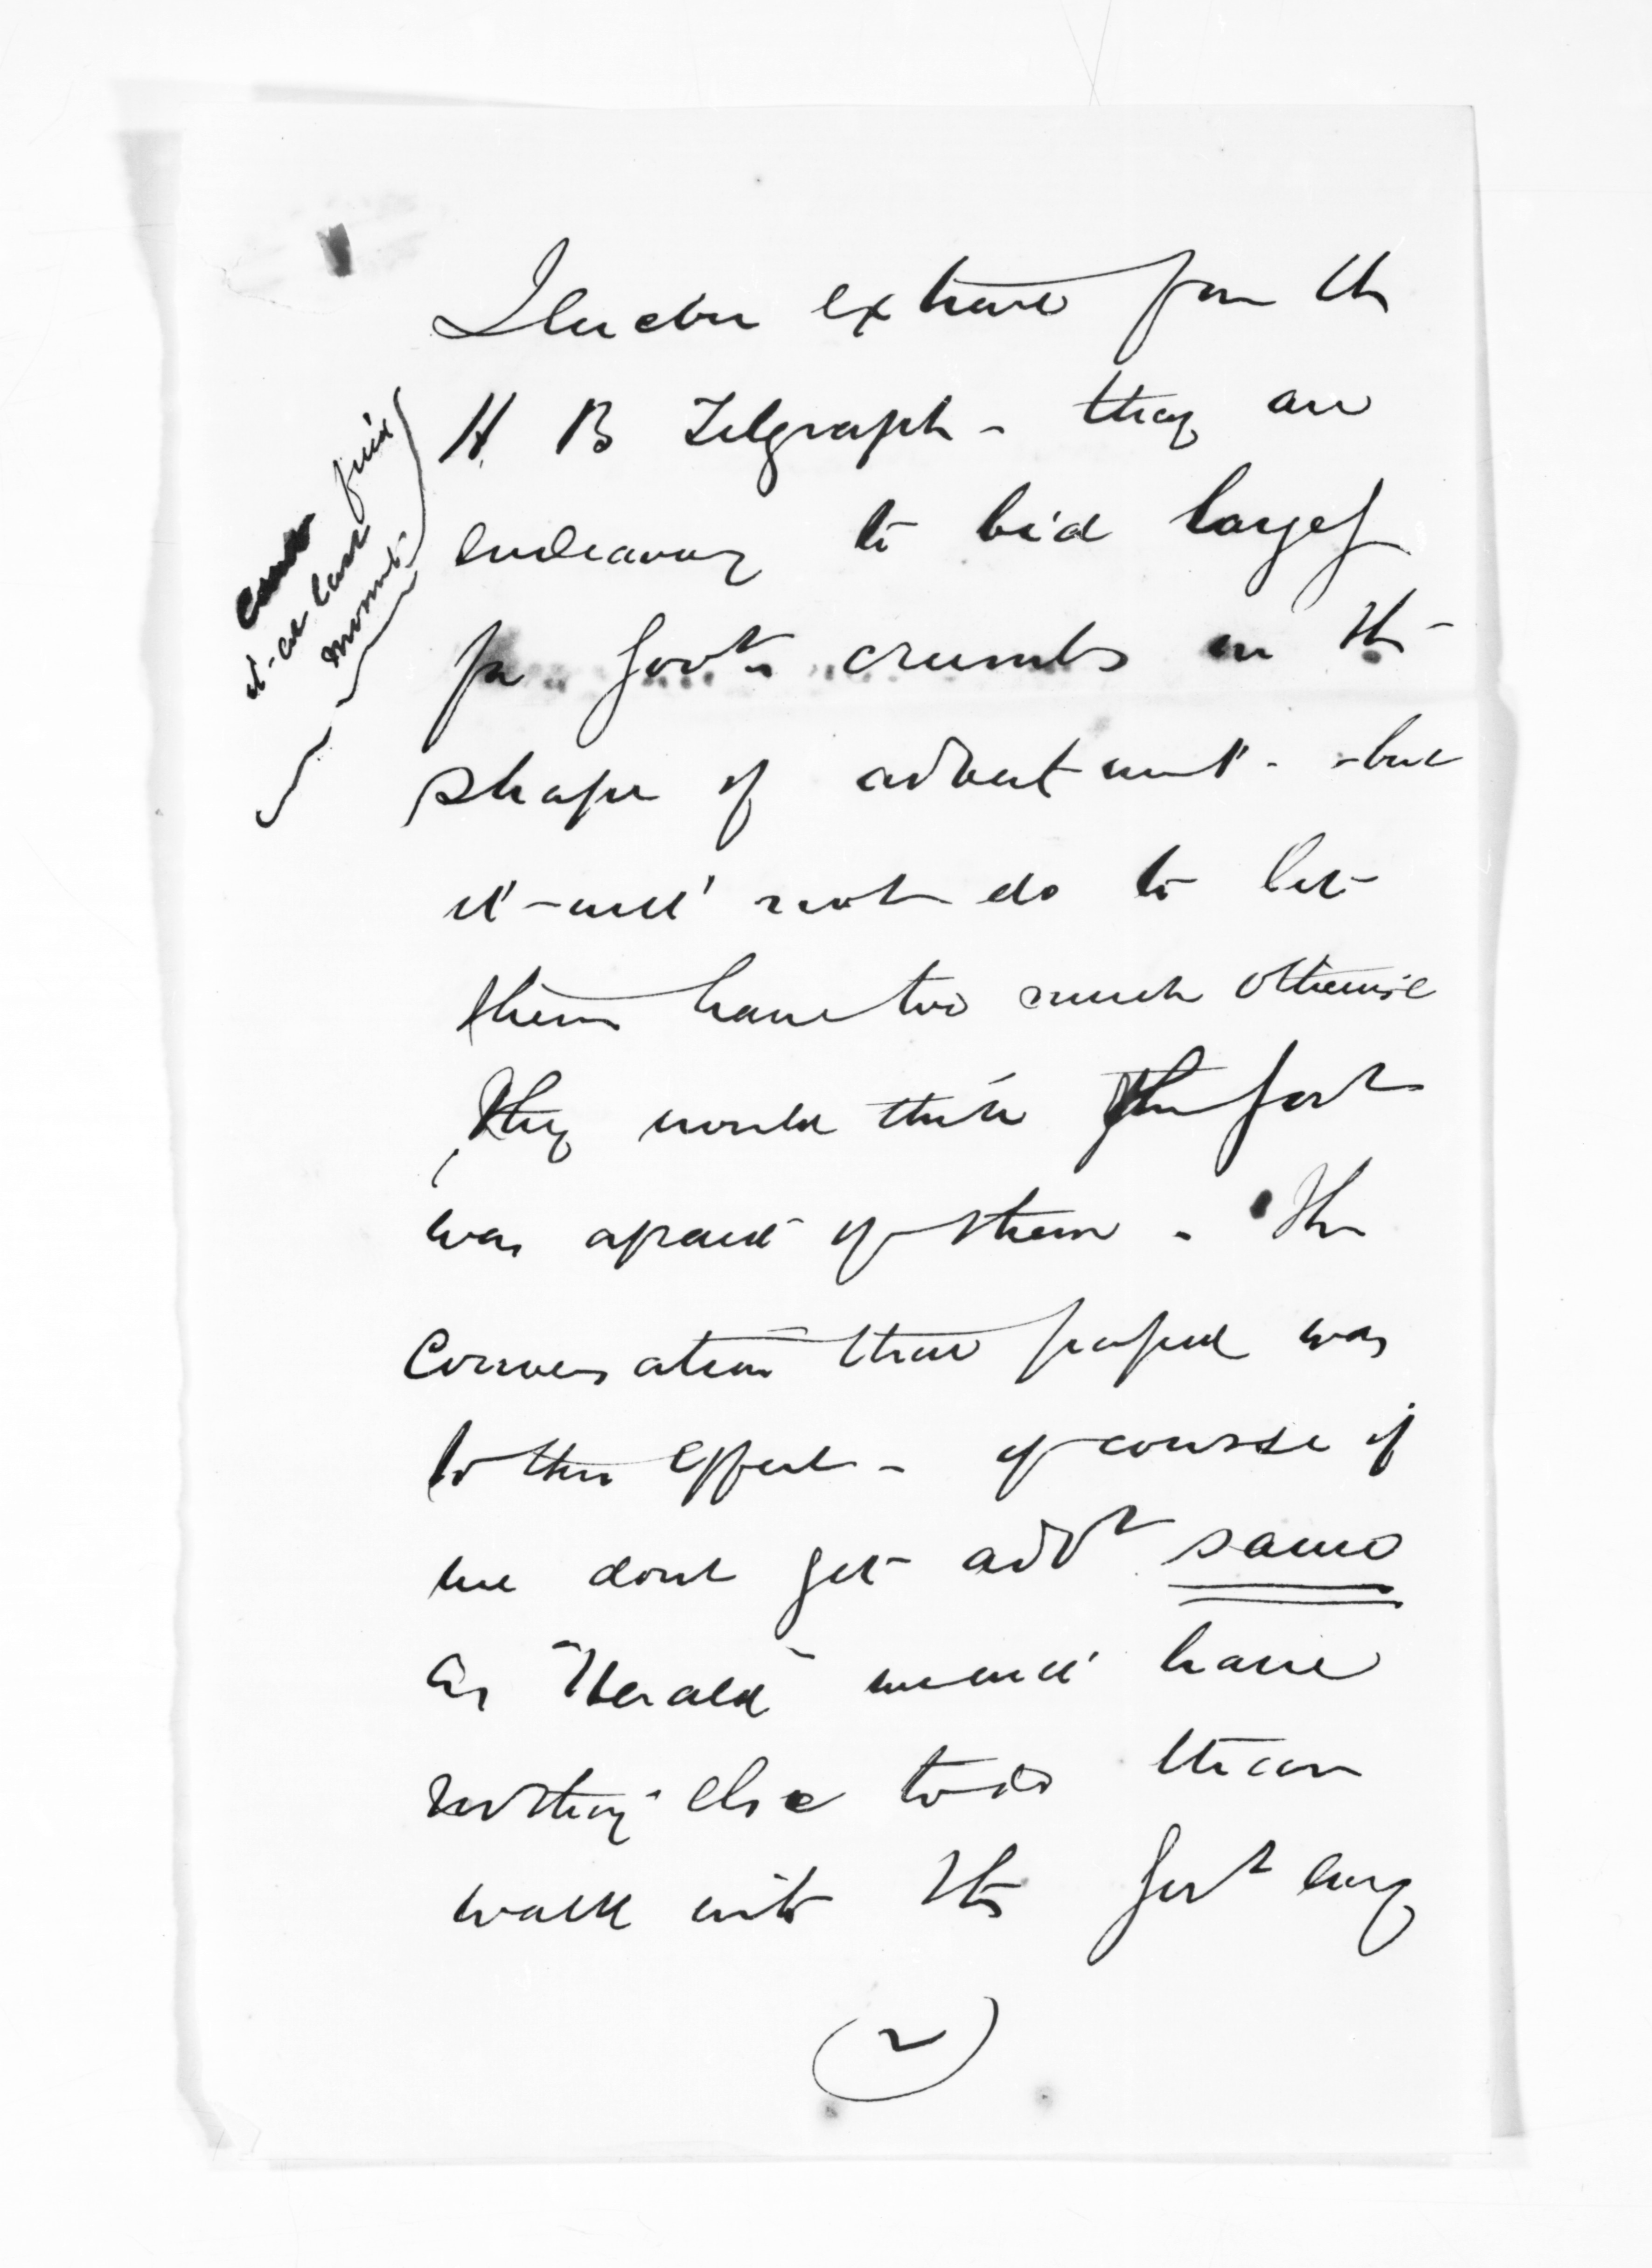 I enclose extract from the
H B Telegraph - they are
endeavoring to bid largely
for Govt crumbs in the
shape of advertmts - but
it will not do to let
them have too much otherwise
they would think the Govt
was afraid of them. The
conversation that passed was
to this effect - of course if
we dont get advt same
as "Herald" we will have
nothing else to do than
walk into the Govt any
(2)
cant find
it at last
moment